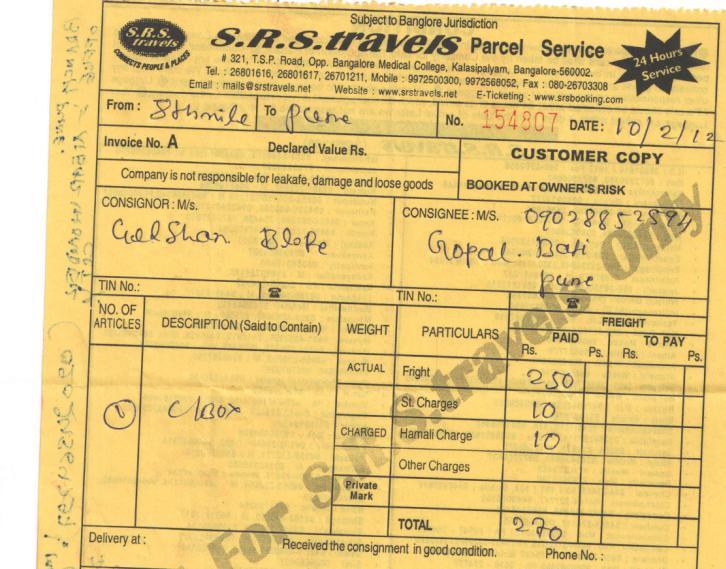 Subject to Banglore Jurisdiction
S.R.S. travels
CONNECTS PEOPLE & PLACES
S.R.S.travels Parcel Service
24 Hours Service
# 321, T.S.P. Road, Opp. Bangalore Medical College, Kalasipalyam, Bangalore-560002.
Tel. : 26801616, 26801617, 26701211, Mobile : 9972500300, 9972568052, Fax : 080-26703308
Email : mails@srstravels.net Website : www.srstravels.net E-Ticketing : www.srsbooking.com
From : 8thmile To pune No. 154807 DATE: 10/2/12
Invoice No. A Declared Value Rs. CUSTOMER COPY
Company is not responsible for leakafe, damage and loose goods BOOKED AT OWNER'S RISK
CONSIGNOR : M/s. CONSIGNEE : M/S. 09028852594
Gopal. Bati
pune
TIN No.: TIN No.:
NO. OF ARTICLES DESCRIPTION (Said to Contain) WEIGHT PARTICULARS FREIGHT
PAID TO PAY
Rs. Ps. Rs. Ps.
ACTUAL Fright 250
1 C/BOX St. Charges 10
CHARGED Hamali Charge 10
Other Charges
Private Mark
TOTAL 270
Delivery at : Received the consignment in good condition. Phone No. :
For S.R.S.travels Only